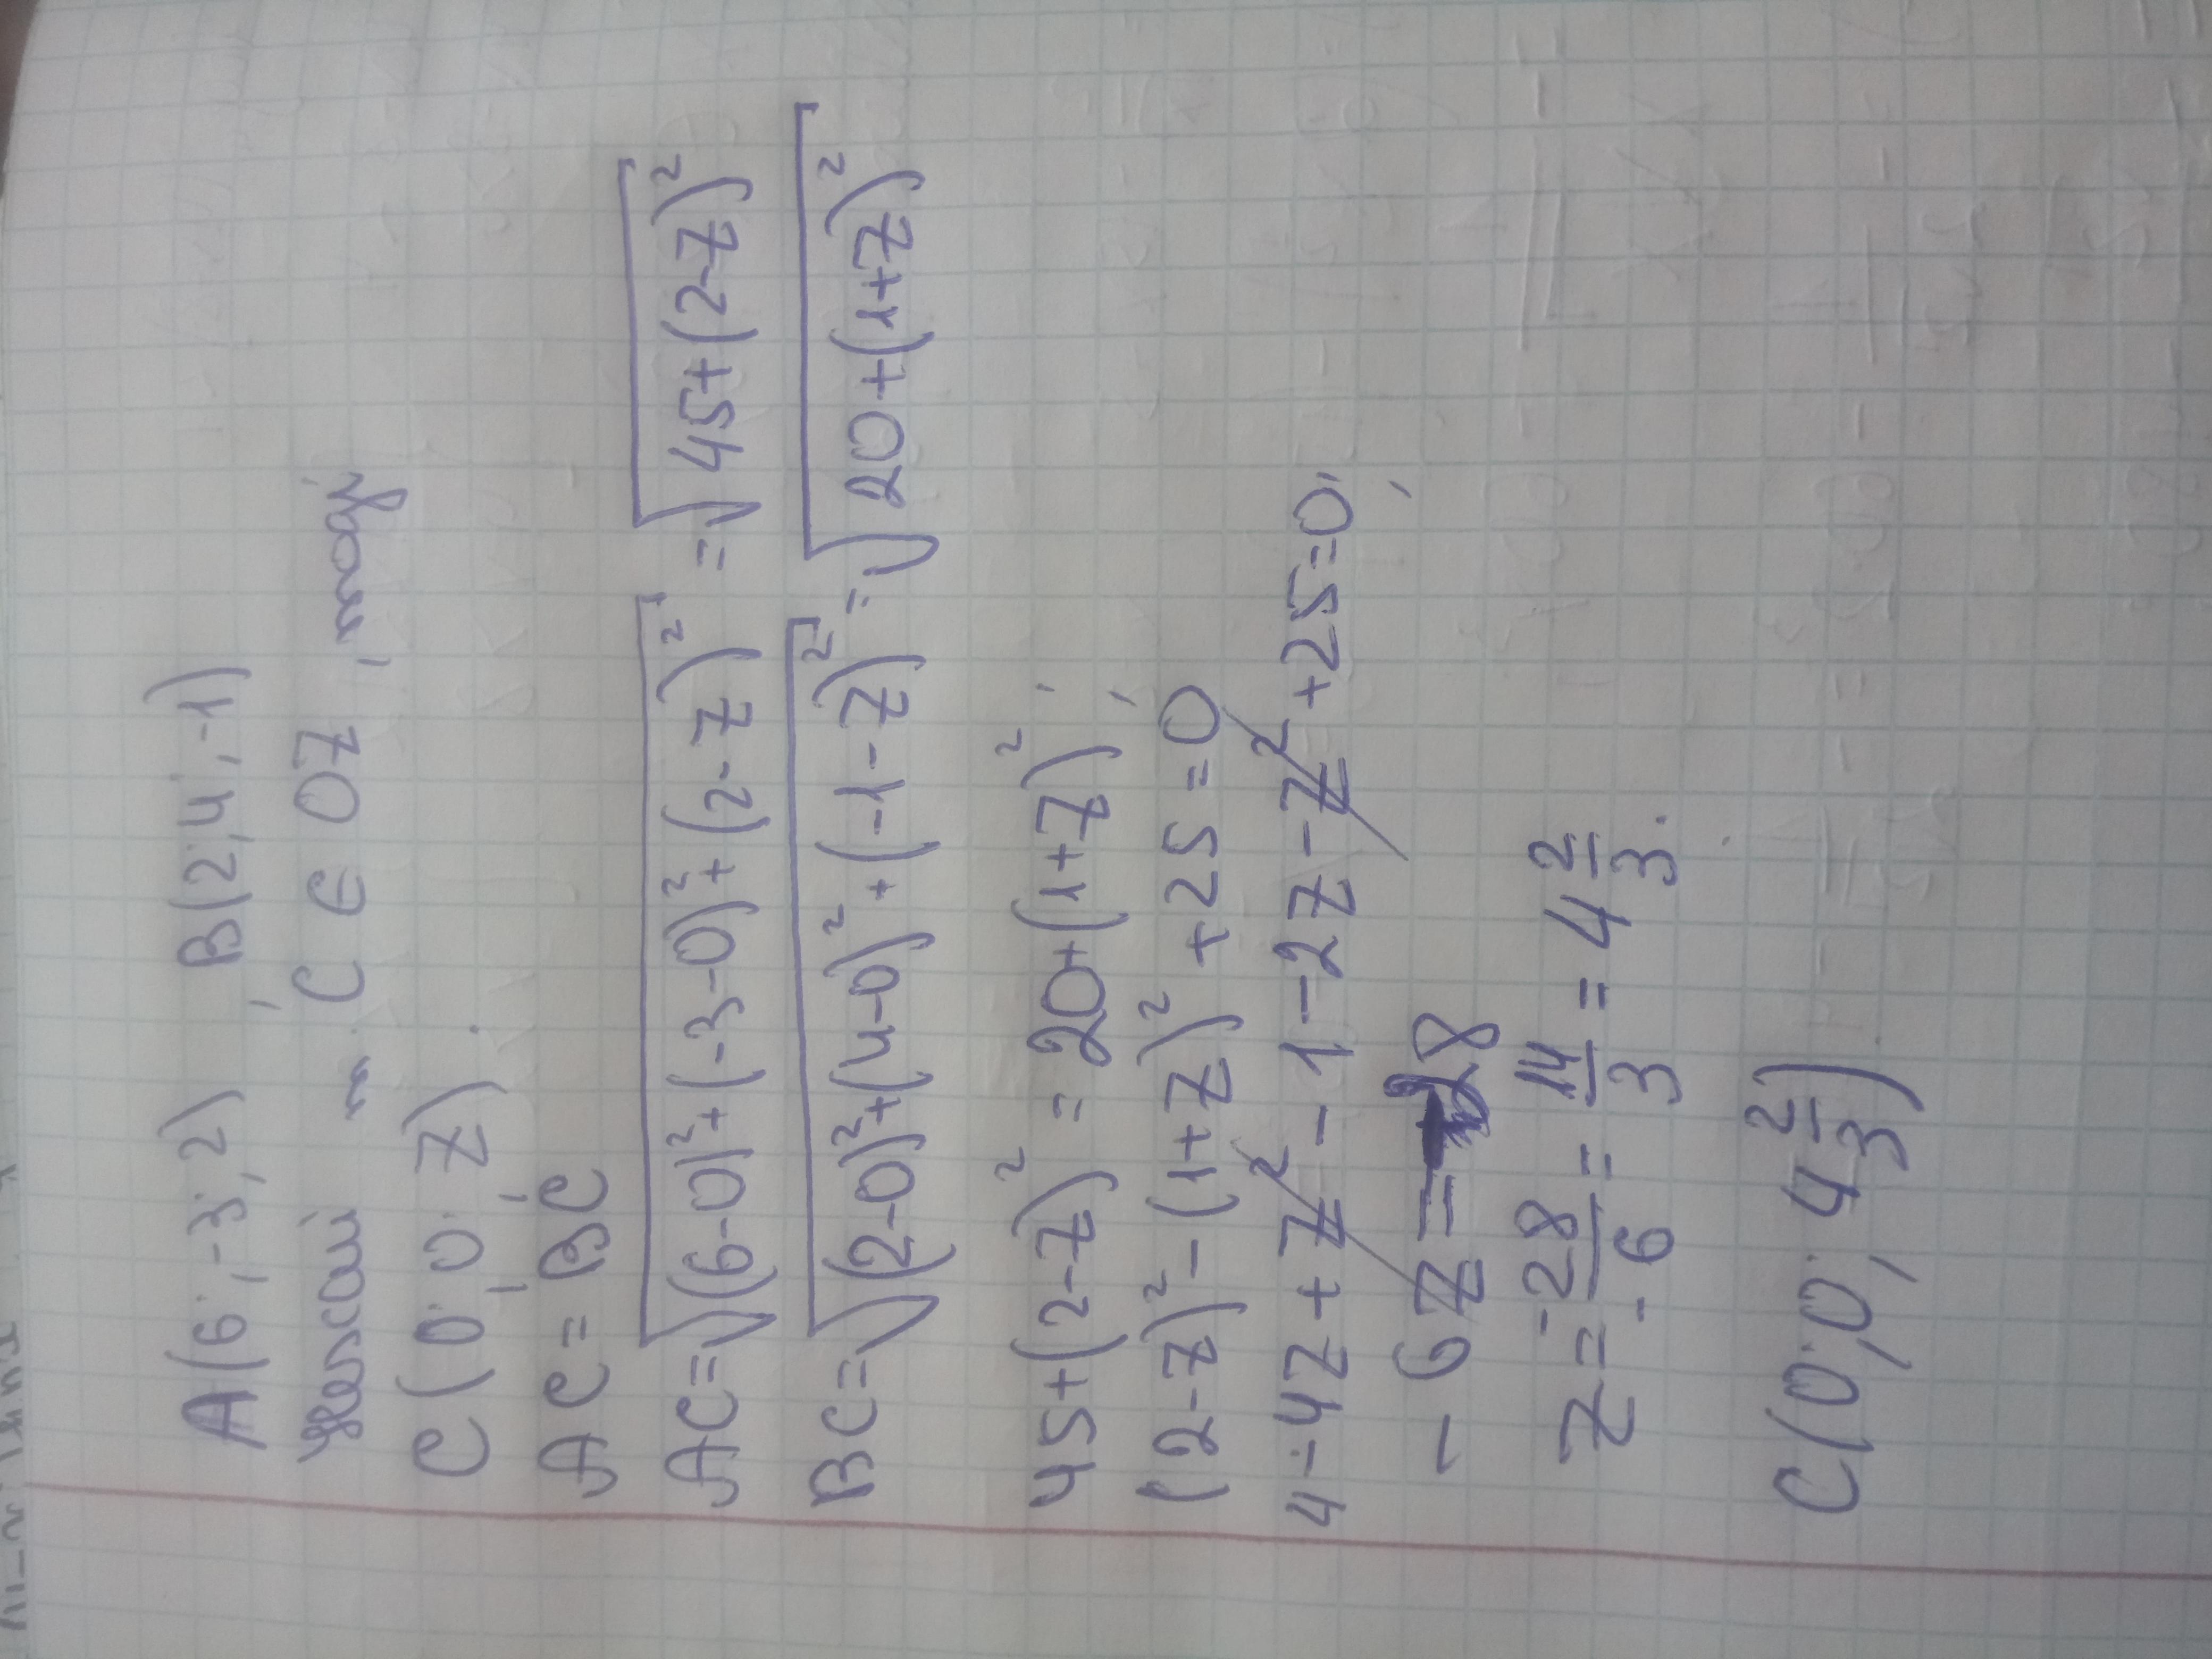 A(6;-3;2), B(2;4;-1)
Нехай т. C ∈ OZ, тоді
C(0;0;Z).
AC = BC
AC=√(6-0)²+(-3-0)²+(2-Z)² = √45+(2-Z)²
BC=√(2-0)²+(4-0)²+(-1-Z)² = √20+(1+Z)²
45+(2-Z)² = 20+(1+Z)²;
(2-Z)²-(1+Z)²+25=0;
4-4Z+Z²-1-2Z-Z²+25=0;
-6Z=-28
Z=-28/-6=14/3=4 2/3.
C(0;0;4 2/3)